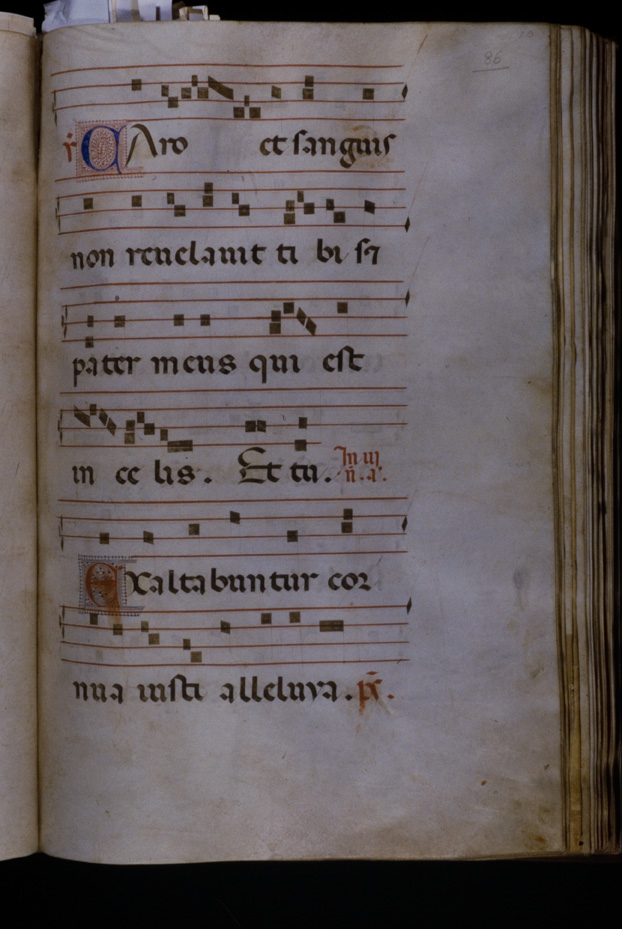 86
r CAro et sanguis
non reuelauit ti bi s;
pater meus qui est
in ce lis. Et tu. In iii
n. a.
Exaltabuntur cor
nua iusti alleluya. ps.